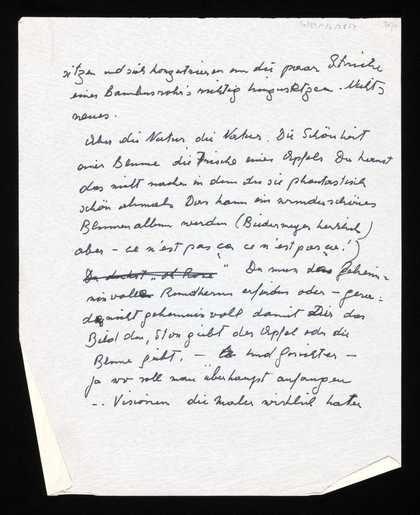 sitzen und sich konzentrieren um die paar Striche
eines Bambusrohrs richtig hinzusetzen. Nichts
neues.
Aber die Natur, die Natur. Die Schönheit
einer Blume die Frische eines Apfels Du kannst
das nicht machen in dem du sie phantastisch
schön abmalst Das kann ein wunderschönes
Blumenalbum werden (Biedermeyer herrlich)
aber – ce n'est pas ça ce n'est pas ça!
Du Rose" Du muss das geheim-
nisvolle erfinden oder – gera-
de nicht geheimnisvoll damit Dir das
Bild den gibt den der Apfel oder die
Blume gibt. – und Gesichter –
ja wo soll man überhaupt anfangen
.. Visionen die Maler wirklich hatten